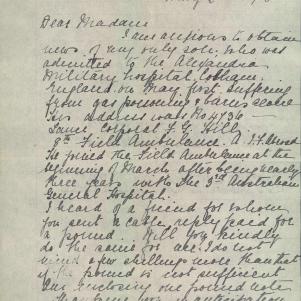 Dear Madam
I am anxious to obtain
news of my only son, who was
admitted to the Alexandra
Military Hospital, Cobham.
England on May first suffering
from gas poisoning &
His address was No 4736 -
Lance Corporal F. G. Hill
8th Field Ambulance. A.I.F. Abroad
He joined the Field Ambulance at the
beginning of March after being nearly
three years with the 3rd Australian
General Hospital.
I heard of a friend for whom
you sent a cable, reply paid for
a pound. Will you kindly
do the same for me. I do not
mind a few shillings more than that
if the pound is not sufficient
am enclosing one pound note